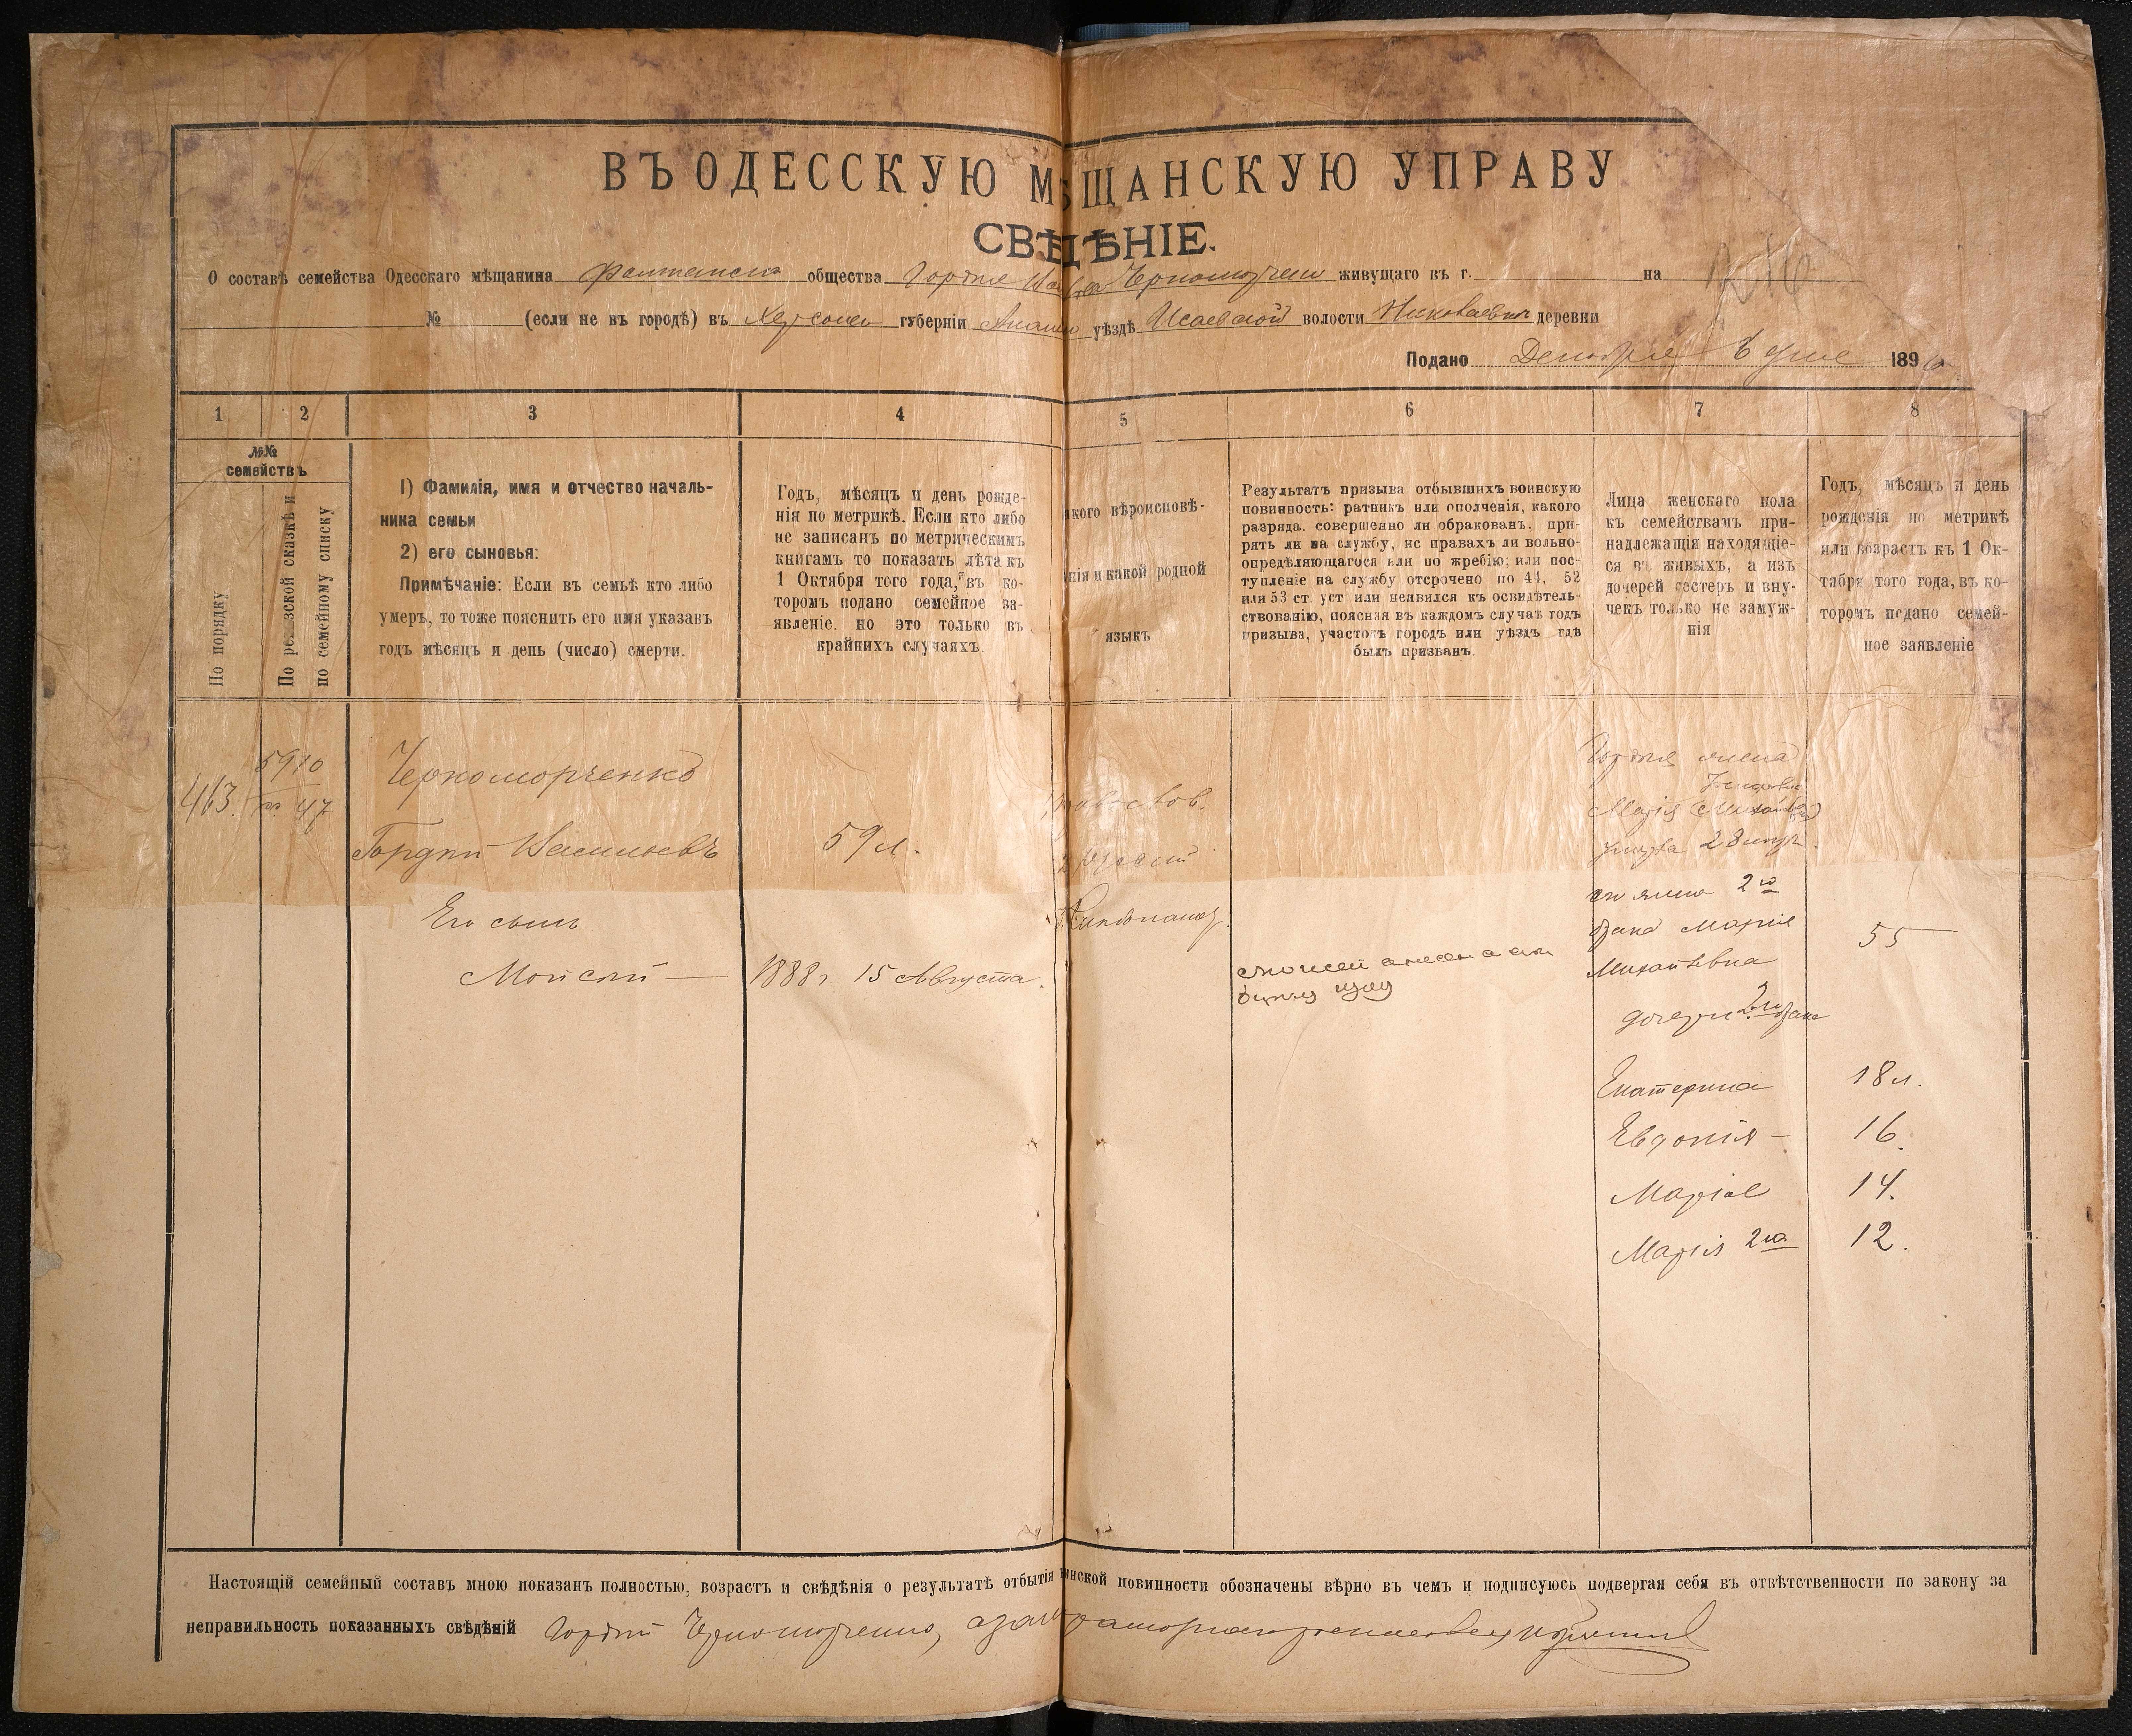 ВЪ ОДЕССКУЮ МѢЩАНСКУЮ УПРАВУ
СВѢДѢНІЕ.
О составѣ семейства Одесскаго мѣщанина общества Гордѣя живущаго въ г. на
№ (если не въ городѣ) въ Херсонск губерніи Анань уѣздѣ Исаевской волости деревни
Подано Декабря 6 дня 189
1 2 3 4 5 6 7 8
№№
семействъ
По порядку
По ревизской сказкѣ и
по семейному списку
1) Фамилія, имя и отчество началь-
ника семьи
2) его сыновья:
Примѣчаніе: Если въ семьѣ кто либо
умеръ, то тоже пояснить его имя указавъ
годъ мѣсяцъ и день (число) смерти.
Годъ, мѣсяцъ и день рожде-
нія по метрикѣ. Если кто либо
не записанъ по метрическимъ
книгамъ то показать лѣта къ
1 Октября того года, въ ко-
торомъ подано семейное за-
явленіе. но это только въ
крайнихъ случаяхъ.
акого вѣроисповѣ-
нія и какой родной
языкъ
Результатъ призыва отбывшихъ воинскую
повинность: ратникъ или ополченія, какого
разряда. совершенно ли обракованъ. при-
рять ли на службу, нс правахъ ли вольно-
опредѣляющагося или по жребію; или пос-
тупленіе на службу отсрочено по 44, 52
или 53 ст уст или неявился къ освидѣтель-
ствованію, поясняя въ каждомъ случаѣ годъ
призыва, участокъ городъ или уѣздъ гдѣ
былъ призванъ.
Лица женскаго пола
къ семействамъ при-
надлежащія находящіе-
ся въ живыхъ, а изъ
дочерей сестеръ и вну-
чекъ только не замуж-
нія
Годъ, мѣсяцъ и день
рожденія по метрикѣ
или возрастъ къ 1 Ок-
тября того года, въ ко-
торомъ подано семей-
ное заявленіе
463. 5910
47
Черноморченко
Гордій Васильевъ 59 л.
Его сынъ
Моисей — 1888 г. 15 Августа.
Гордѣя жена
Марія
умерла
его жена 2го
брака Марія 55
Михайловна
дочери 2го брака
Екатерина 18 л.
Евдокія — 16.
Марія 14.
Марія 2ая 12.
Настоящій семейный составъ мною показанъ полностью, возрастъ и свѣдѣнія о результатѣ отбытія инской повинности обозначены вѣрно въ чемъ и подписуюсь подвергая себя въ отвѣтственности по закону за
неправильность показанныхъ свѣдѣній Гордѣй Черноморченко,